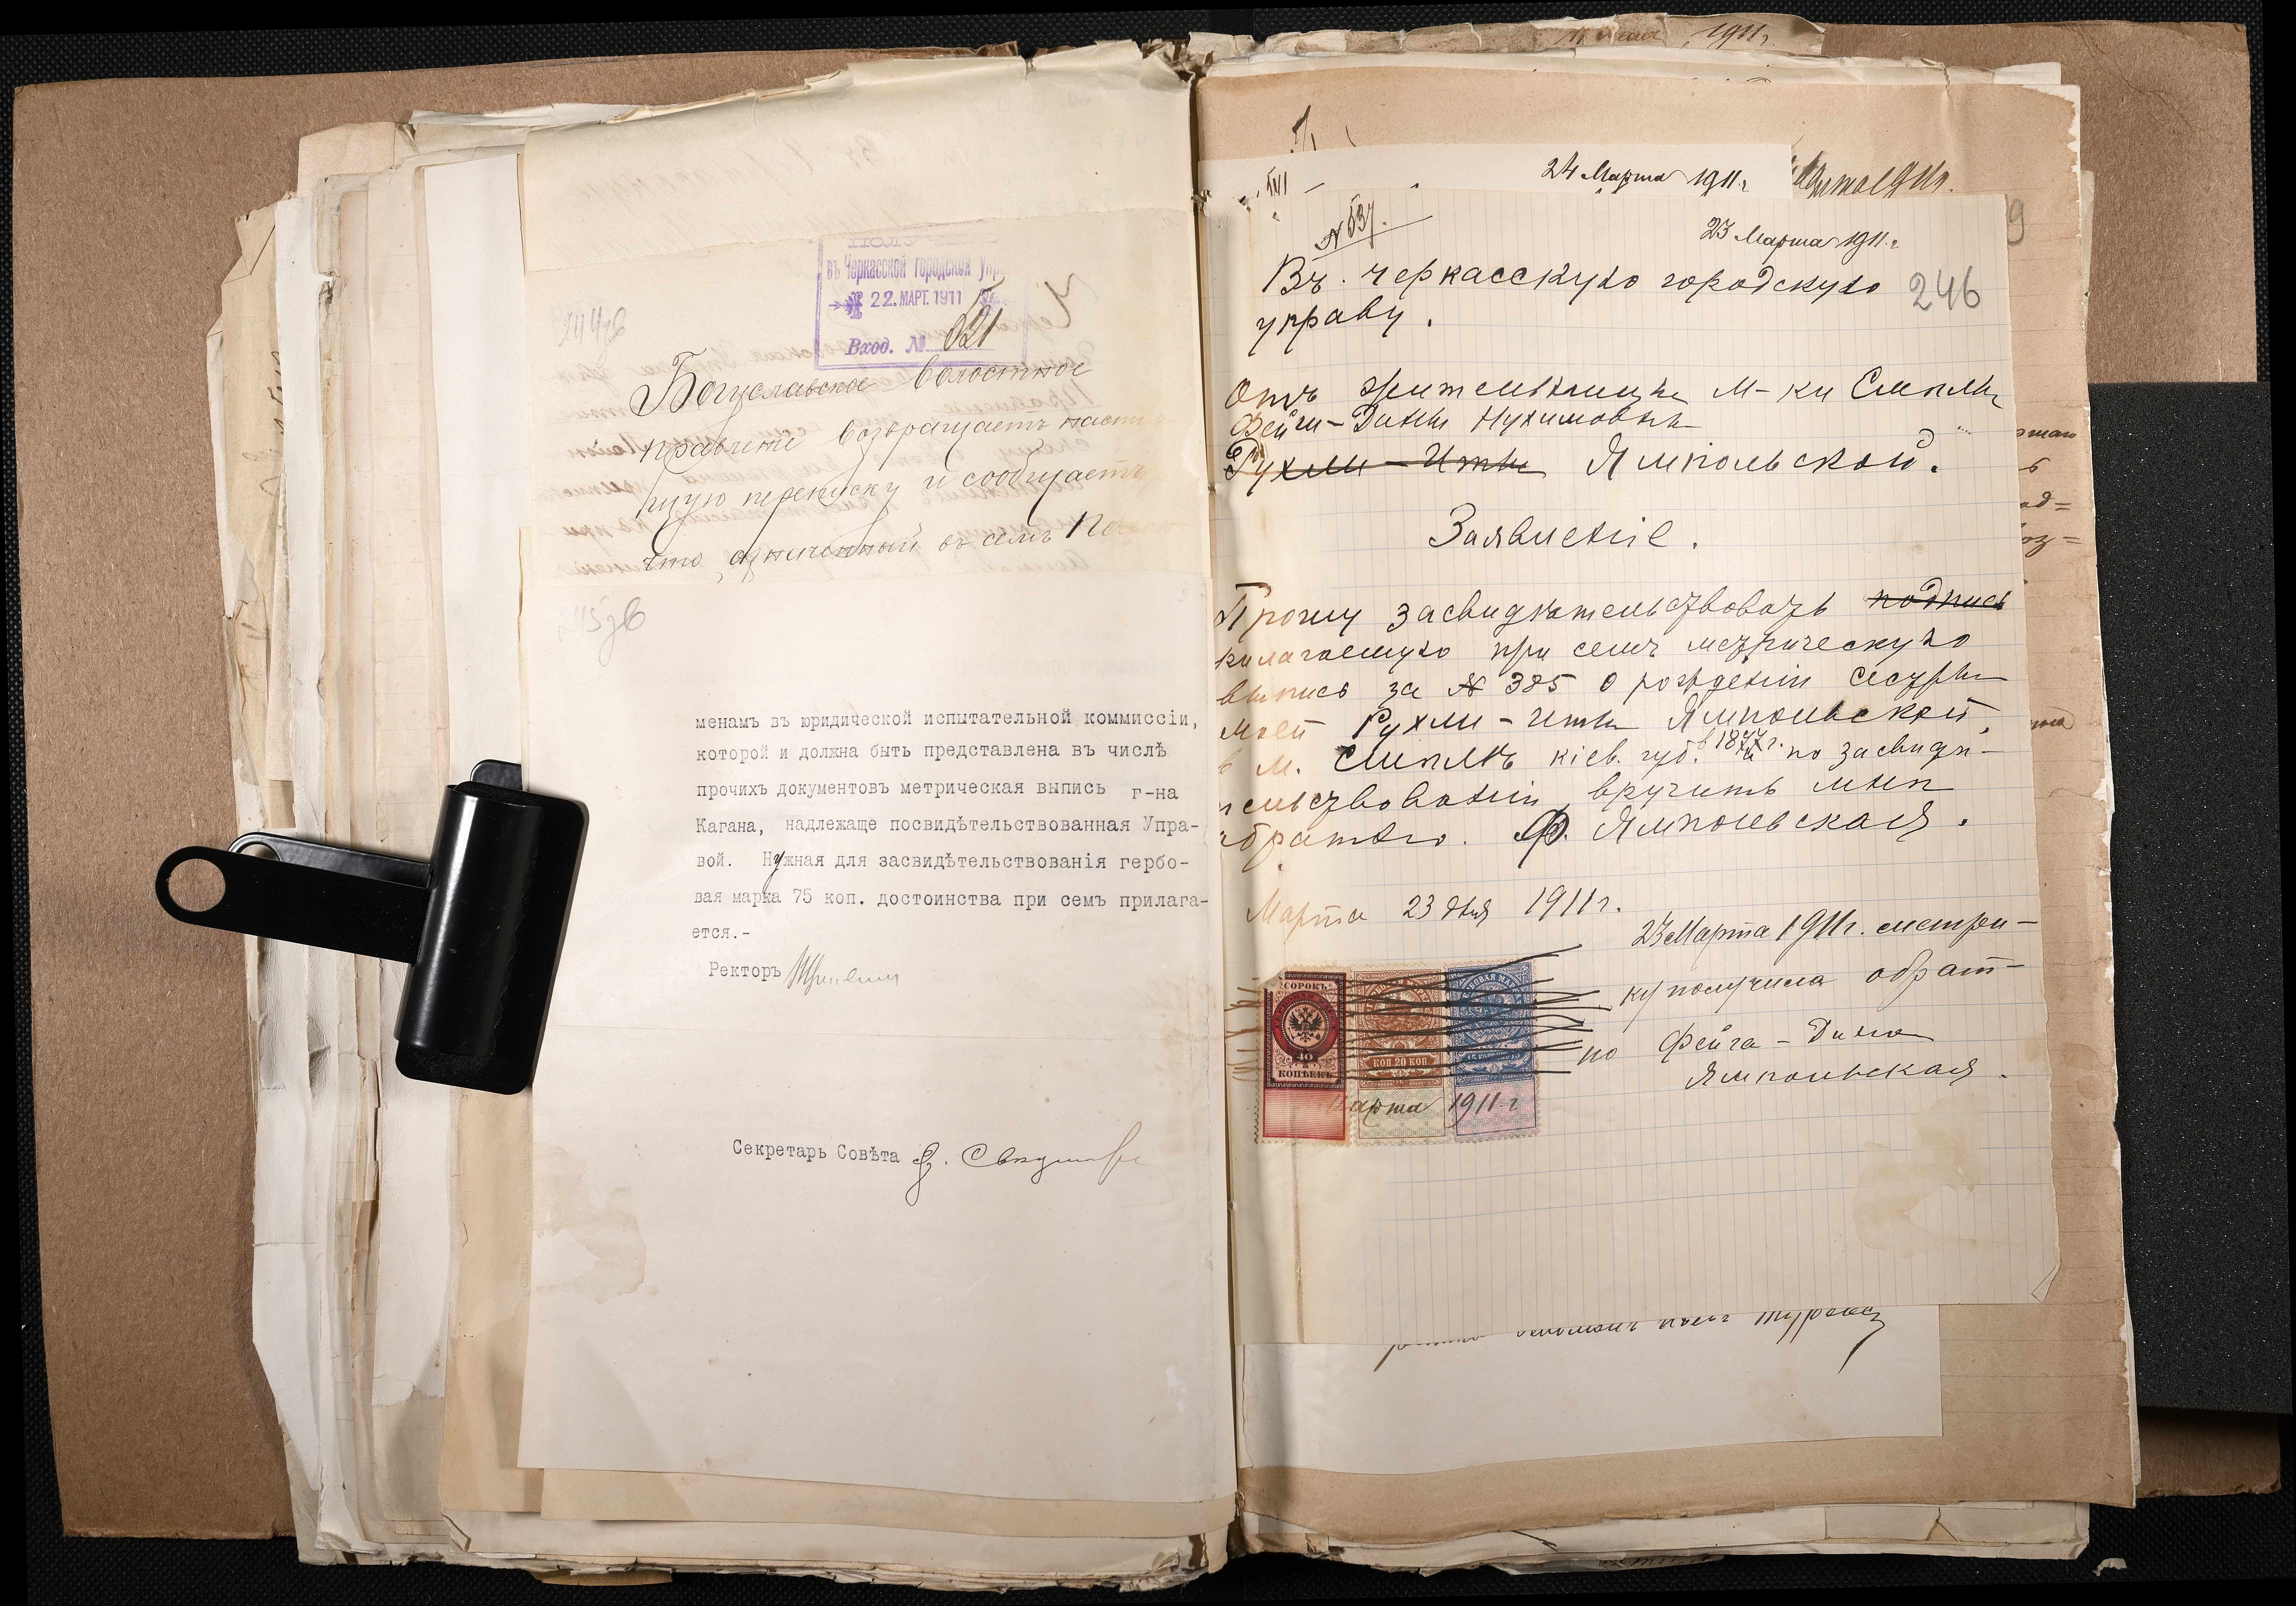 въ Черкасской городской Упр
22. МАРТ. 1911
Вход. № 521
Богуславское волостное
правленіе возвращаетъ настоя
щую переписку и сообщаетъ
что означенный въ семъ
менамъ въ юридической испытательной коммиссіи,
которой и должна быть представлена въ числѣ
прочихъ документовъ метрическая выпись г-на
Кагана, надлежаще посвидѣтельствованная Упра-
вой. Нужная для засвидѣтельствованія гербо-
вая марка 75 коп. достоинства при семъ прилага-
ется.-
Ректоръ
Секретарь Совѣта
1911г.
24 Марта 1911г.
№ 537.
23 Марта 1911г.
Въ черкасскую городскую
управу.
246
Отъ жительницы м-ки Смѣлы
Фейги-Дины Нухимовны
Рухли-Иты Ямпольской.
Заявленіе.
Прошу засвидѣтельствовать подпись
прилагаемую при семъ метрическую
выпись за № 385 о рожденіи сестры
моей Рухли-Иты Ямпольской,
в м. Смѣлѣ кіев. губ. в 1877г. и по засвидѣ-
тельствованіи вручить мнѣ
обратно. Ф. Ямпольская.
Марта 23 дня 1911г.
23 Марта 1911г. метри-
ку получила обрат-
но Фейга-Дина
Ямпольская.
СОРОКЪ
40
КОПѢЕКЪ
КОП 20 КОП
Марта 1911г